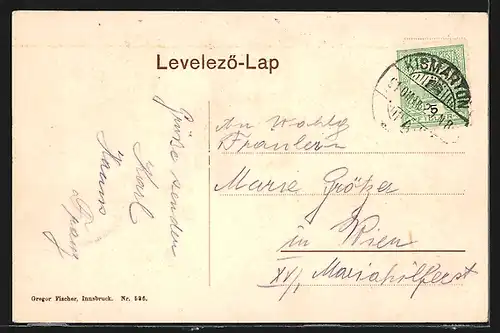 Levelező-Lap
KISMARTON
Grüße senden
Karl
Franz
An Wohlg
Fräulein
Marie
in Wien
XV/, Mariahilferst
Gregor Fischer, Innsbruck. Nr. 526.